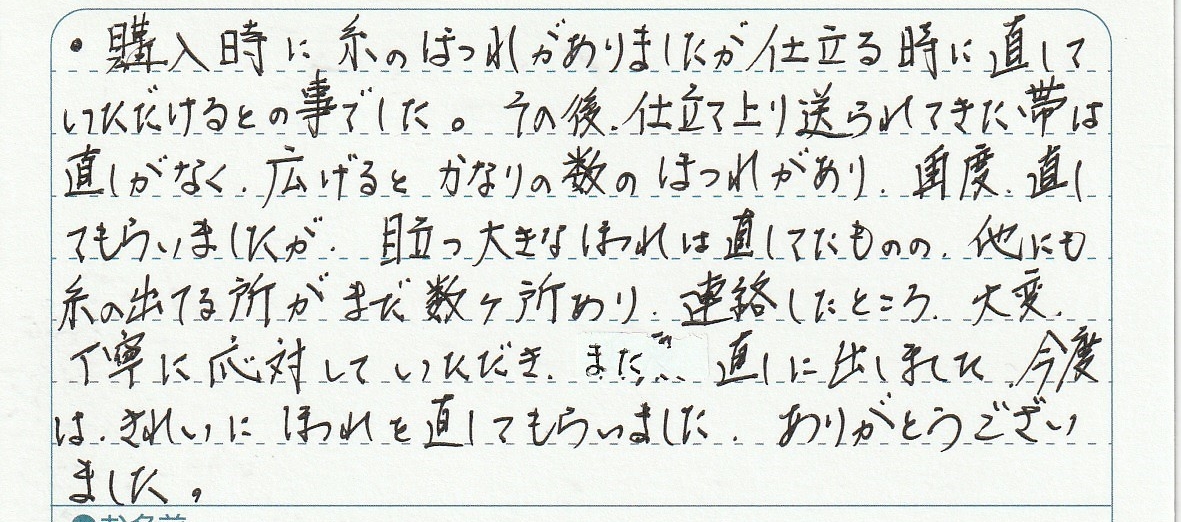 ・購入時に糸のほつれがありましたが仕立る時に直して
いただけるとの事でした。その後、仕立て上り送られてきた帯は
直しがなく、広げるとかなりの数のほつれがあり、再度、直し
てもらいましたが、目立つ大きなほつれは直してたものの、他にも
糸の出てる所がまだ数ヶ所あり、連絡したところ、大変、
丁寧に応対していただき、また、直しに出しました。今度
は、きれいにほつれを直してもらいました。ありがとうござい
ました。
お名前